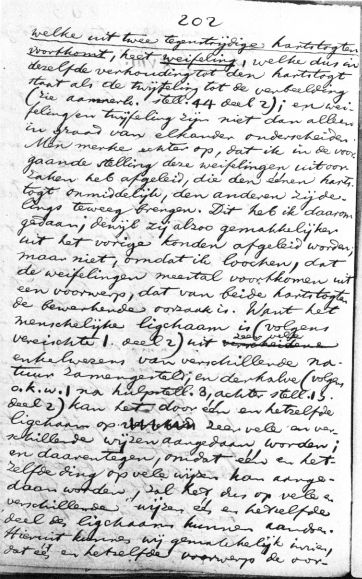 202
welke uit twee tegenstrijdige hartstogten
voortkomt, heet weifeling, welke dus in
dezelfde verhouding tot den hartstogt
staat als de twijfeling tot de verbeelding
(zie aanmerk. stell. 44 deel 2); en wei-
feling en twijfeling zijn niet dan alleen
in graad van elkander onderscheiden.
Men merke echter op, dat ik in de voor-
gaande stelling deze weifelingen uit oor-
zaken heb afgeleid, die den eenen harts-
togt onmiddelijk, den anderen zijde-
lings teweeg brengen. Dit heb ik daarom
gedaan, dewijl zij alzoo gemakkelijker
uit het vorige konden afgeleid worden,
maar niet, omdat ik loochen, dat
de weifelingen meestal voortkomen uit
een voorwerp, dat van beide hartstogten
de bewerkende oorzaak is. Want het
menschelijke ligchaam is (volgens
vereischte 1. deel 2) uit zeer vele
enkelwezens van verschillende na-
tuur zamengesteld; en derhalve (volgens
a.k.w.1 na hulpstell. 3, achter stell. 13
deel 2) kan het door één en hetzelfde
ligchaam op zeer vele en ver-
schillende wijzen aangedaan worden;
en daarentegen, omdat één en het-
zelfde ding op vele wijzen kan aange-
daan worden, zal het dus op vele en
verschillende wijzen één en hetzelfde
deel des ligchaams kunnen aandoen.
Hieruit kunnen wij gemakkelijk inzien,
dat één en hetzelfde voorwerp de oor-